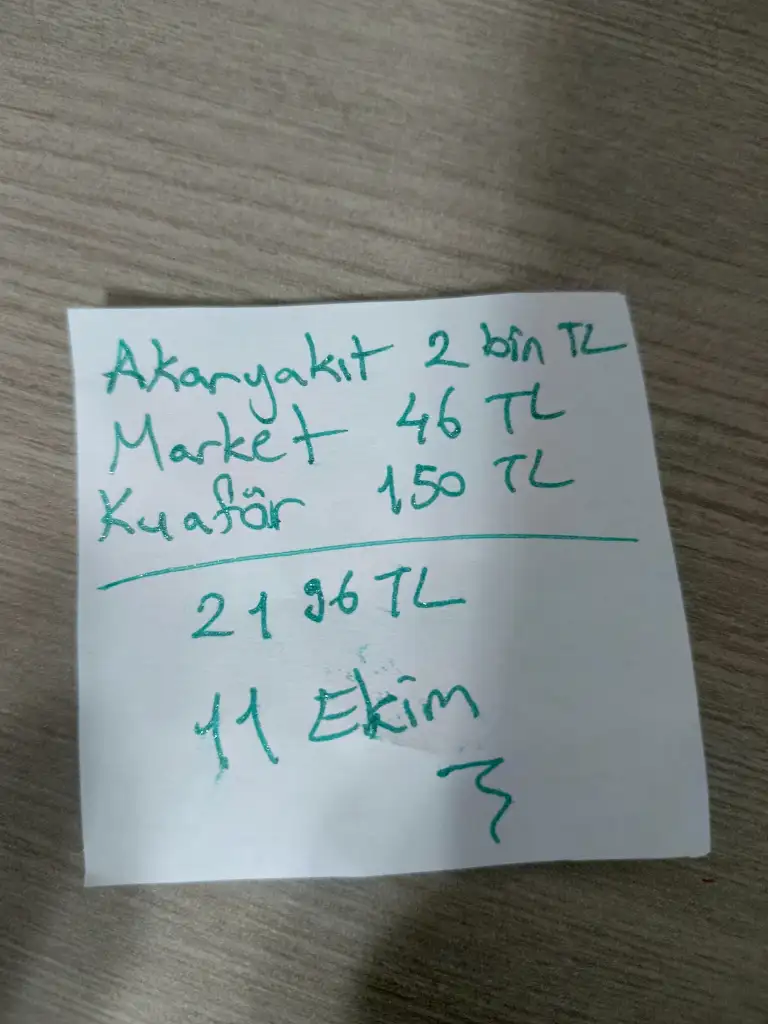 Akaryakıt 2 bin TL
Market 46 TL
Kuaför 150 TL
2196 TL
11 Ekim